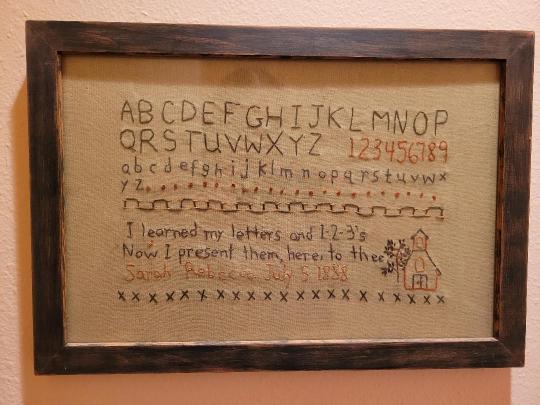 ABCDEFGHIJKLMNOP
QRSTUVWXYZ 123456789
abcdefghijklmnopqrstuvwx
yz
I learned my letters and 1-2-3's
Now I present them, here, to thee
Sarah Rebecca July 5 1888
xxxxxxxxxxxxxxxxxxxxxxxx